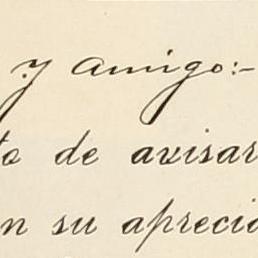 y amigo:-
to de avisar
n su aprecia